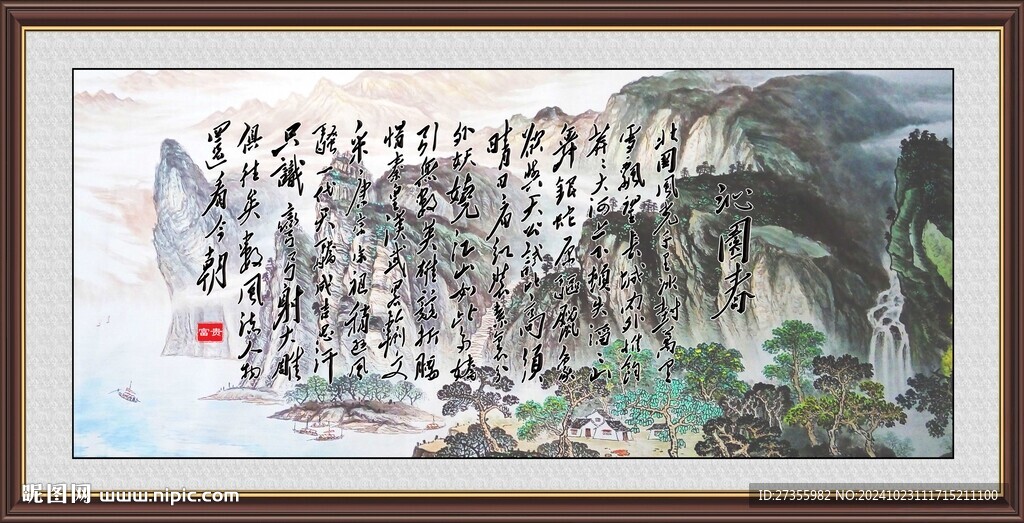 沁園春
北國風光千里冰封萬里
雪飄望長城內外惟餘
莽〻大河上下頓失滔〻山
舞銀蛇原驅臘象
欲與天公試比高須
晴日看紅裝素裹分
外妖嬈江山如此多嬌
引無數英雄競折腰
惜秦皇漢武略輸文
采唐宗宋祖稍遜風
騷一代天驕成吉思汗
只識彎弓射大雕
俱往矣數風流人物
還看今朝
富贵
昵图网 www.nipic.com
ID:27355982 NO:20241023111715211100